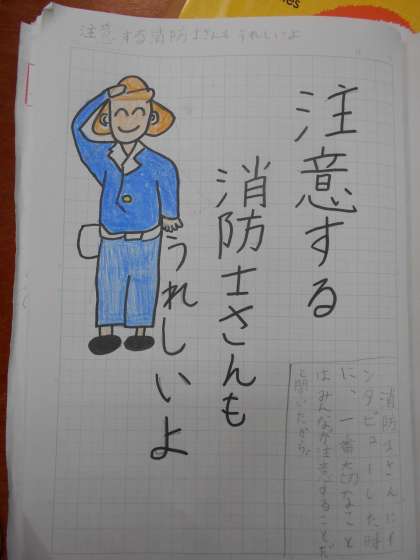 注意する消防士さんもうれしいよ
注意する
消防士さんも
うれしいよ
消防士さんにイ
ンタビューした時
に、一番大切なこと
はみんなが注意することだ
と聞いたから。